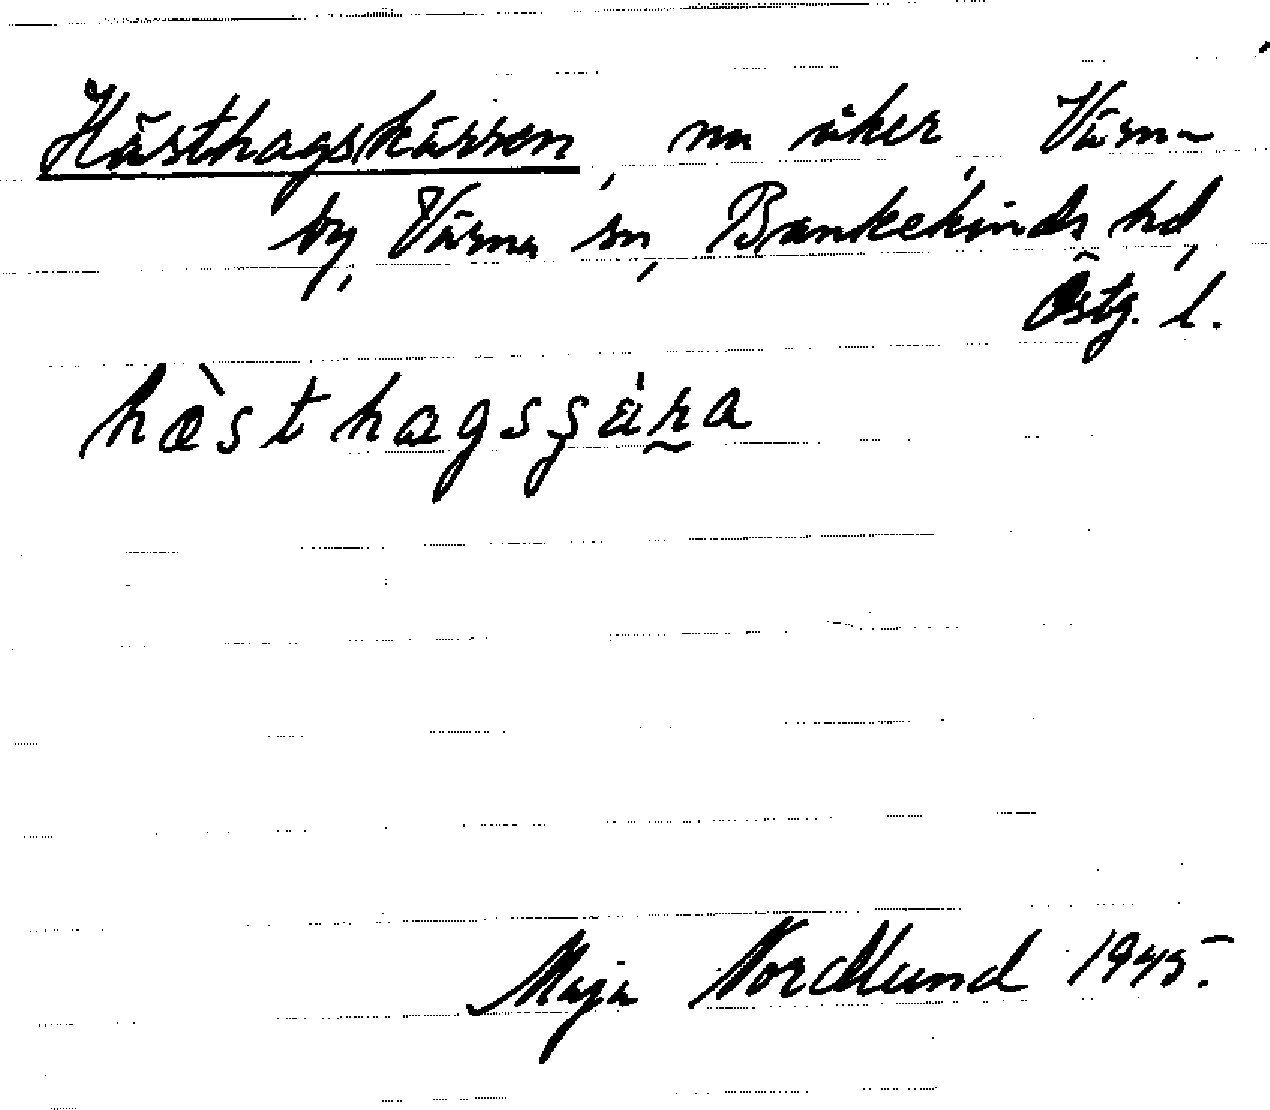 Hästhagskärren, nu åker, Värna
by, Värna sn, Bankekinds hd,
Östg. l.
hàsthagsşä́ra
Maja Nordlund 1945.